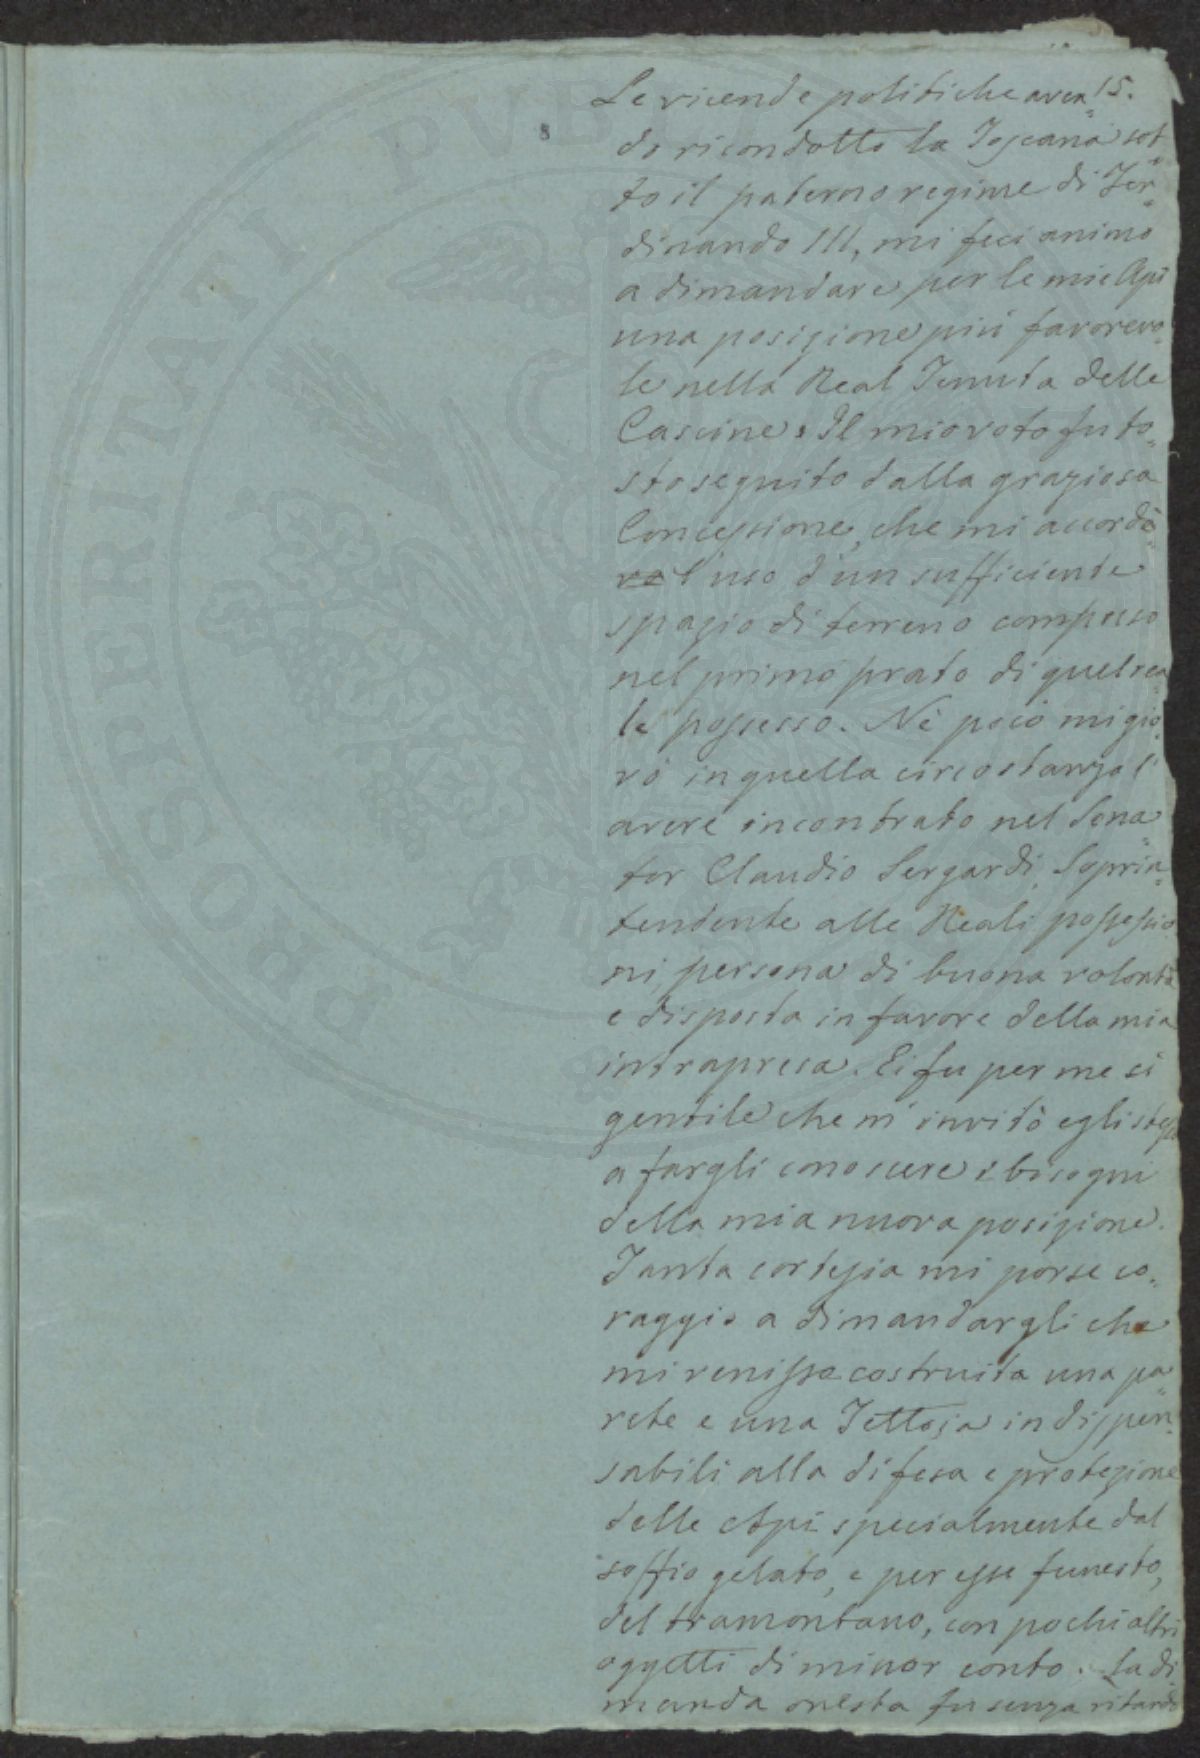 15.
Le vicende politiche aven=
do ricondotto la Toscana sot=
to il paterno regime di Fer=
dinando III, mi feci animo
a dimandare per le mie Api
una posizione più favorevo=
le nella Real Tenuta delle
Cascine. Il mio voto fu to=
sto seguito dalla graziosa
Concessione, che mi accordò
l'uso d'un sufficiente
spazio di terreno compreso
nel primo prato di quel rea=
le possesso. Nè poco mi gio=
vò in quella circostanza l'
avere incontrato nel Sena=
tor Claudio Sergardi Soprin=
tendente alle Reali possessio=
ni persona di buona volontà
e disposta in favore della mia
intrapresa. Ei fu per me sì
gentile che m'invitò egli stesso
a fargli conoscere i bisogni
della mia nuova posizione.
Tanta cortesia mi porse co=
raggio a dimandargli che
mi venisse costruita una pa=
rete e una Tettoja indispen=
sabili alla difesa e protezione
delle Api specialmente dal
soffio gelato, e per esse funesto,
del tramontano, con pochi altri
oggetti di minor conto. La di=
manda onesta fu senza ritardo
PROSPERITATI PVBLI